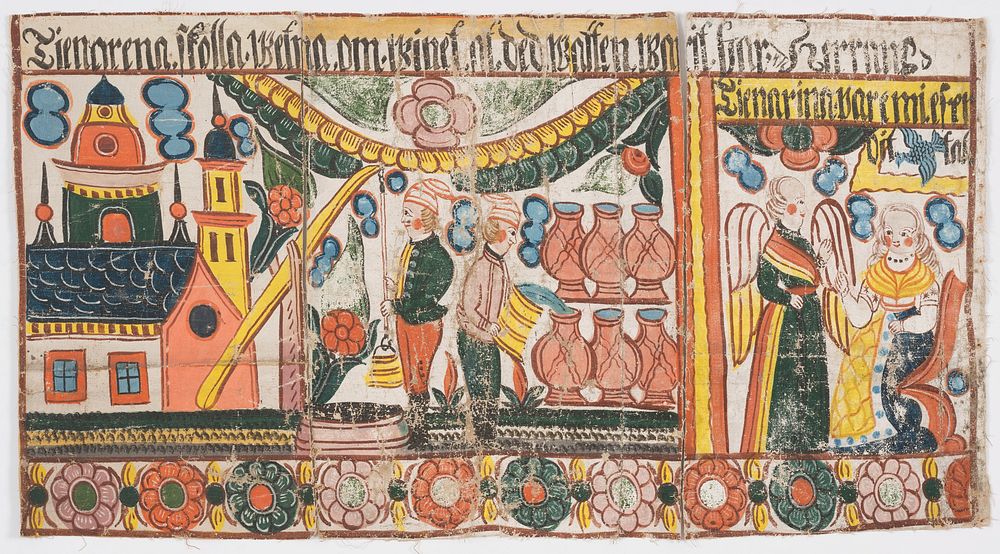 Tienarena. skolla. wetna. om. winet. at. ded. watten. warit. har Herrans
Tienarinna var emiesen